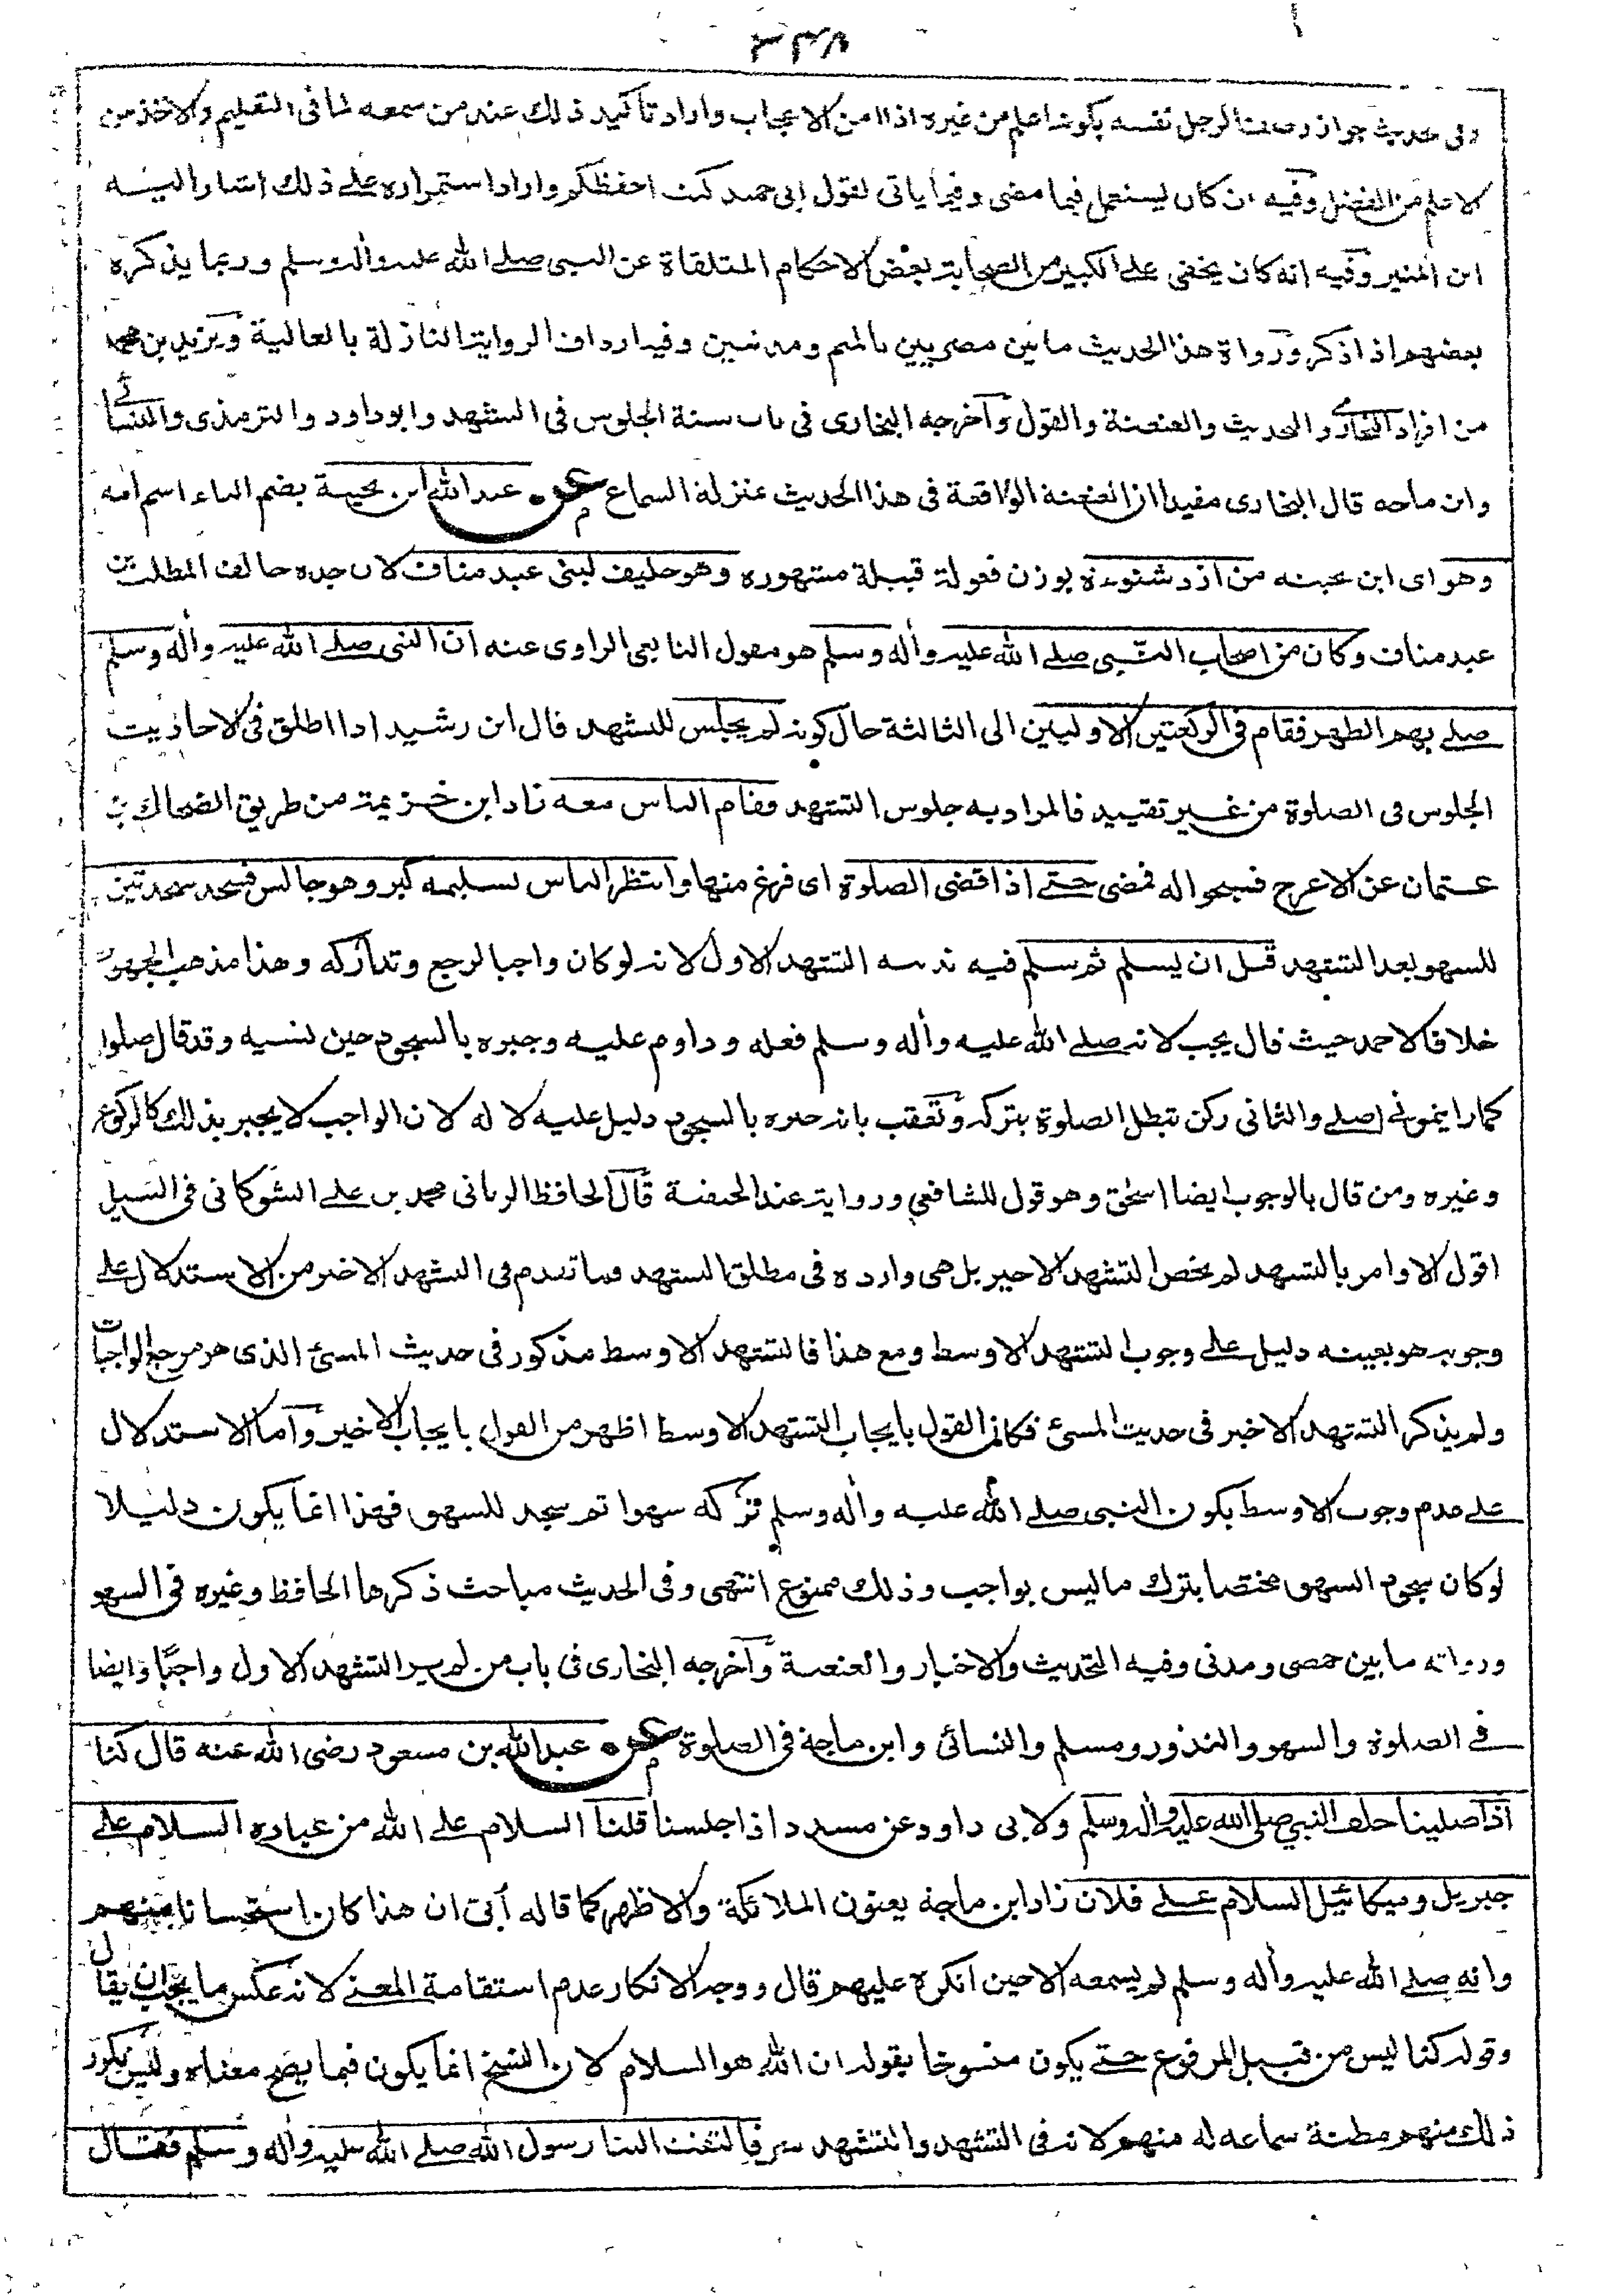 وفى حديث جواز وصف الرجل نفسه بكونه اعلم من غيره اذا امن الاعجاب واراد تأكيد ذلك عند من سمعه لما فى التعليم والاخذ من
الاعلم من الفضل وفيه ان كان يستعمل فيما مضى وفيما ياتى لقول ابى حميد كنت احفظكم واراد استمراره على ذلك اشار اليه
ابن المنير وفيه انه كان يخفى على الكبير من الصحابة بعض الاحكام المتلقاة عن النبى صلى الله عليه واله وسلم وربما يذكره
بعضهم اذا ذكر ورواة هذا الحديث ما بين مصريين بالميم ومدنيين وفيه ارداف الرواية النازلة بالعالية ويزيد بن محمد
من افراد البخارى والتحديث والعنعنة والقول واخرجه البخارى فى باب سنة الجلوس فى التشهد وابو داود والترمذى والنسائى
وابن ماجه قال البخارى مفيدا ان العنعنة الواقعة فى هذا الحديث بمنزلة السماع عن عبد الله ابن بحينة بضم الباء اسم امه
وهو اى ابن بحينه من ازد شنوءة بوزن فعولة قبيلة مشهوره وهو حليف لبنى عبد مناف لان جده حالف المطلب بن
عبد مناف وكان من اصحاب النبى صلى الله عليه واله وسلم هو مقول التابعى الراوى عنه ان النبى صلى الله عليه واله وسلم
صلى بهم الظهر فقام فى الركعتين الاوليين الى الثالثة حال كونه لم يجلس للتشهد قال ابن رشيد اذا اطلق فى الاحاديث
الجلوس فى الصلوة من غير تقييد فالمراد به جلوس التشهد وقام الناس معه زاد ابن خزيمة من طريق الضحاك بن
عثمان عن الاعرج فسبحوا له فمضى حتى اذا قضى الصلوة اى فرغ منها وانتظر الناس تسليمه كبر وهو جالس فسجد سجدتين
للسهو بعد التشهد قبل ان يسلم ثم سلم فيه ندبيه التشهد الاول لانه لو كان واجبا لرجع وتداركه وهذا مذهب الجمهور
خلافا لاحمد حيث قال يجب لانه صلى الله عليه واله وسلم فعله وداوم عليه وجبره بالسجود حين نسيه وقد قال صلوا
كما رايتمونى اصلى والثانى ركن تبطل الصلوة بتركه وتعقب بانه جبره بالسجود دليل عليه لا له لان الواجب لا يجبر بذلك كالركوع
وغيره ومن قال بالوجوب ايضا اسحق وهو قول للشافعى ورواية عند الحنفية قال الحافظ الربانى محمد بن على الشوكانى فى السيل
اقول الاوامر بالتشهد لم تخص التشهد الاخير بل هى وارده فى مطلق التشهد وما تقدم فى التشهد الاخير من الاستدلال على
وجوبه هو بعينه دليل على وجوب التشهد الاوسط ومع هذا فالتشهد الاوسط مذكور فى حديث المسئ الذى هو مرجع الواجبات
ولم يذكر التشهد الاخير فى حديث المسئ فكان القول بايجاب التشهد الاوسط اظهر من القول بايجاب الاخير واما الاستدلال
على عدم وجوب الاوسط بكون النبى صلى الله عليه واله وسلم تركه سهوا ثم سجد للسهو فهذا انما يكون دليلا
لو كان سجود السهو مختصا بترك ما ليس بواجب وذلك ممنوع انتهى وفى الحديث مباحث ذكرها الحافظ وغيره فى السهو
ورواته ما بين حمصى ومدنى وفيه التحديث والاخبار والعنعنة واخرجه البخارى فى باب من لم ير التشهد الاول واجبًا وايضا
فى الصلوة والسهو والنذور ومسلم والنسائى وابن ماجة فى الصلوة عن عبد الله بن مسعود رضى الله عنه قال كنا
اذا صلينا خلف النبى صلى الله عليه واله وسلم ولابى داود عن مسدد اذا جلسنا قلنا السلام على الله من عباده السلام على
جبريل وميكائيل السلام على فلان زاد ابن ماجة يعنون الملائكة والاظهر كما قاله أبى ان هذا كان استحسانا منهم
وانه صلى الله عليه واله وسلم لم يسمعه الا حين انكره عليهم قال ووجه الانكار عدم استقامة المعنى لانه عكس ما يجب ان يقال
وقوله كنا ليس من قبيل المرفوع حتى يكون منسوخا بقوله ان الله هو السلام لان النسخ انما يكون فيما يصح معناه وليس تكرر
ذلك منهم مظنة سماعه له منهم لانه فى التشهد والتشهد سر فالتفت الينا رسول الله صلى الله عليه واله وسلم فقال